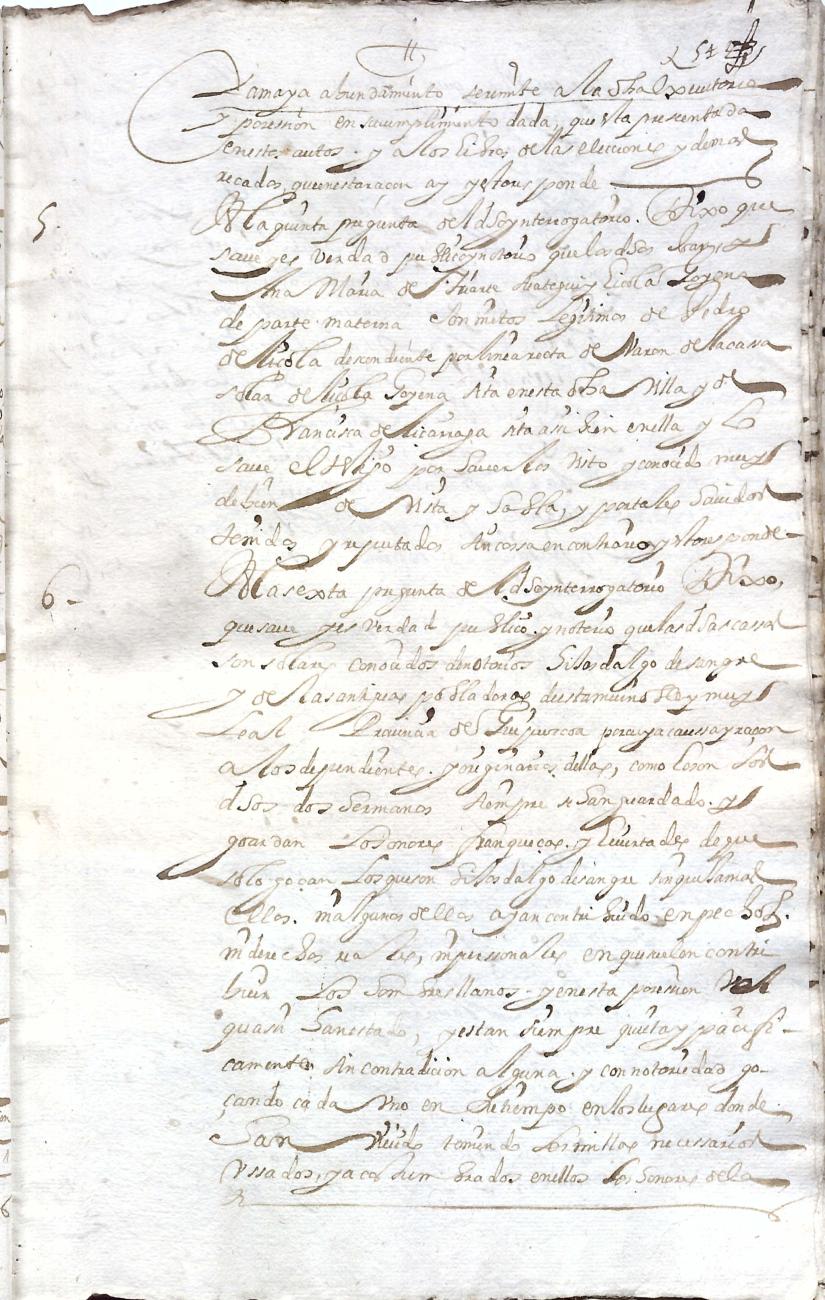 y a maya abundamiento se remite a la dha executoria
y posesion en su cumplimiento dada, que esta presentada
en estos autos. y a los libros de las elecciones y demas
recados, que en esta raçon ay y esto responde
5. A la quinta pregunta del dho ynterrogatorio. Dixo que
save y es verdad publico y notorio que los dhos
Ana Maria de Yriarte y Liçola Goyena
de parte materna son nietos legitimos de Pedro
de Liçola descendiente por linea recta de Varon de la cassa
solar de Liçola Goyena sita en esta dha Villa y de
Francisca de Liçarraga sita assi bien en ella y lo
save el testigo por haverlos visto y conoçido muy
de bien de vista y habla, y por tales havidos
tenidos y reputados sin cossa en contrario y esto responde
6. A la sexta pregunta del dho ynterrogatorio Dixo,
que save y es verdad publico. y notorio que las dhas cassas
son solares conoçidos de notorios hijosdalgo de sangre
y de las antiguas pobladoras de esta muy noble y muy
Leal Provinçia de Guipuzcoa por cuya caussa y raçon
a los dependientes. y originarios dellas, como lo son los
dhos dos hermanos siempre se han guardado. y
goardan los honores franqueças. y livertades de que
solo goçan los que son hijosdalgo de sangre sin que jamas
ellos. ni algunos dellos ayan contribuido en pechos.
ni derechos reales, ni personales en que suelen contri
buir los hombres llanos. y en esta posesion vel
quasi han estado, y estan siempre quieta y paçifi-
camente sin contradiçion alguna. y con notoriedad go-
çando cada uno en su tiempo en los lugares donde
han vivido teniendo los millares necessarios
ussados, y acostumbrados en ellos los honores de la